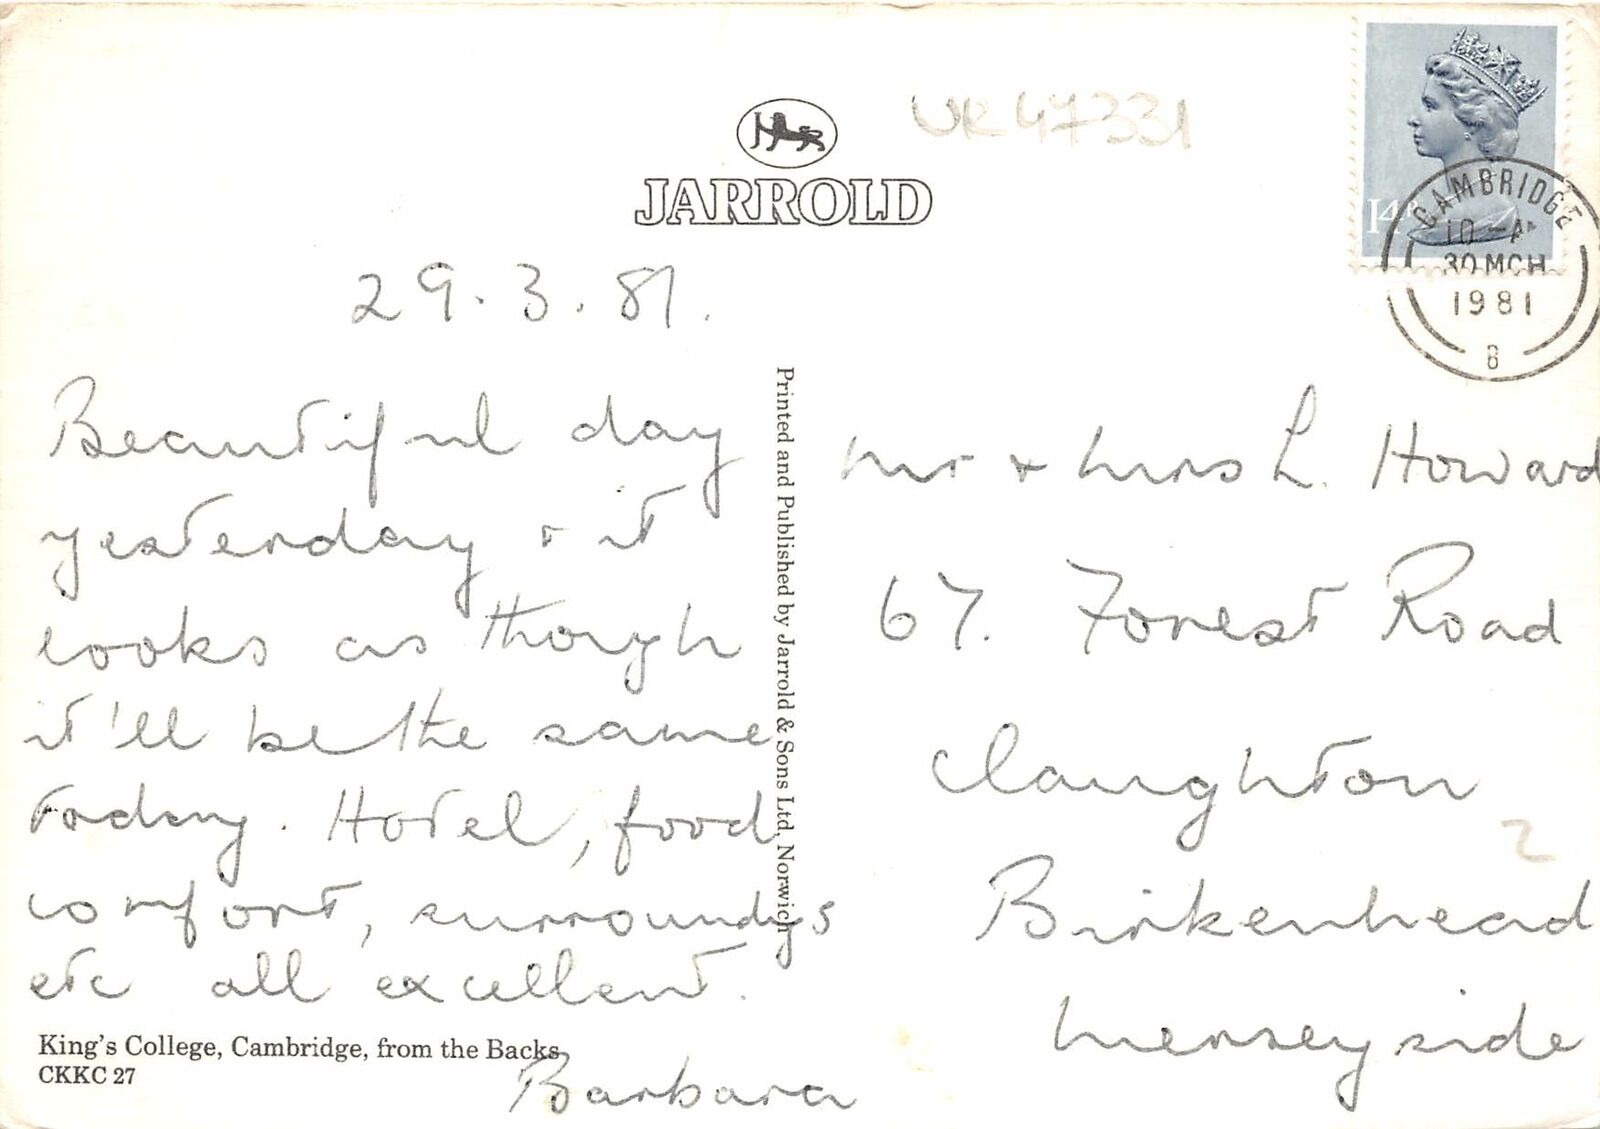 UK47331
JARROLD
14P
CAMBRIDGE
10-AM
30 MCH
1981
B
29.3.81.
Beautiful day
yesterday + it
looks as though
it'll be the same
today. Hotel, food
comfort, surroundgs
etc all excellent.
Barbara
King's College, Cambridge, from the Backs
CKKC 27
Printed and Published by Jarrold & Sons Ltd, Norwich
Mr + Mrs L. Howard
67. Forest Road
Claughton
Birkenhead
Merseyside
2